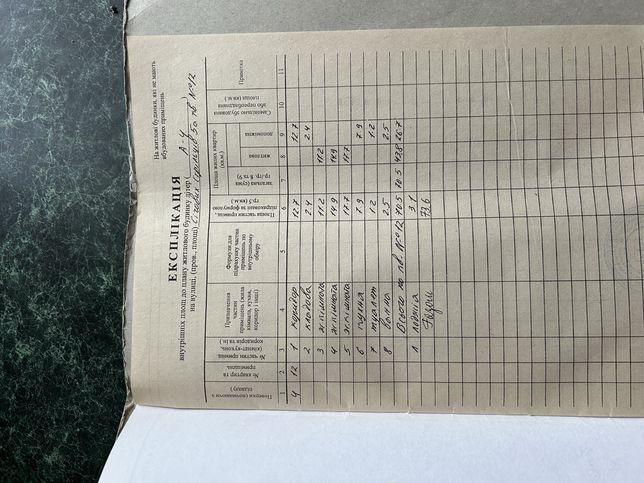 На житлові будинки, які не мають
вбудованих приміщень
ЕКСПЛІКАЦІЯ
внутрішніх площ до плану житлового будинку літер ( А-4 )
на вулиці, (пров., площі) 50 кв №12
Поверхи (починаючи з підвалу)
№ квартир та приміщень
№ частин приміщ. (кімнат-кухонь, коридорів та ін.)
Призначення частин приміщень (жила кімната, кухня, коридор і інші)
Формули для підрахунку частин приміщень по внутрішньому обміру
Площа частин приміщ. підрахована за формулою гр.5 (кв.м.)
Площа жилих квартир (кв.м.)
загальна (сума гр./гр. 8 та 9)
житлова
допоміжна
Самовільно збудована або переобладнана площа (кв.м.)
Примітка
1 2 3 4 5 6 7 8 9 10 11
4 12 1 коридор 12.7 12.7
2 кладова 2.4 2.4
3 житл.кімната 11.2 11.2
4 житл.кімната 14.9 14.9
5 житл.кімната 11.7 11.7
6 кухня 7.9 7.9
7 туалет 1.2 1.2
8 ванна 2.5 2.5
Всього по кв. №12 70.5 70.5 42.8 26.7
1 лоджія 3.1
73.6